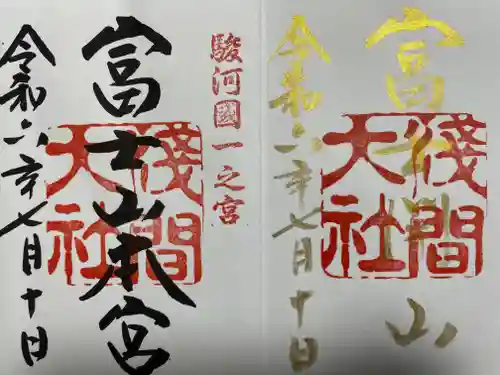 富士山
淺間
大社
令和六年七月十日
駿河國一之宮
富士山本宮
淺間
大社
令和六年七月十日